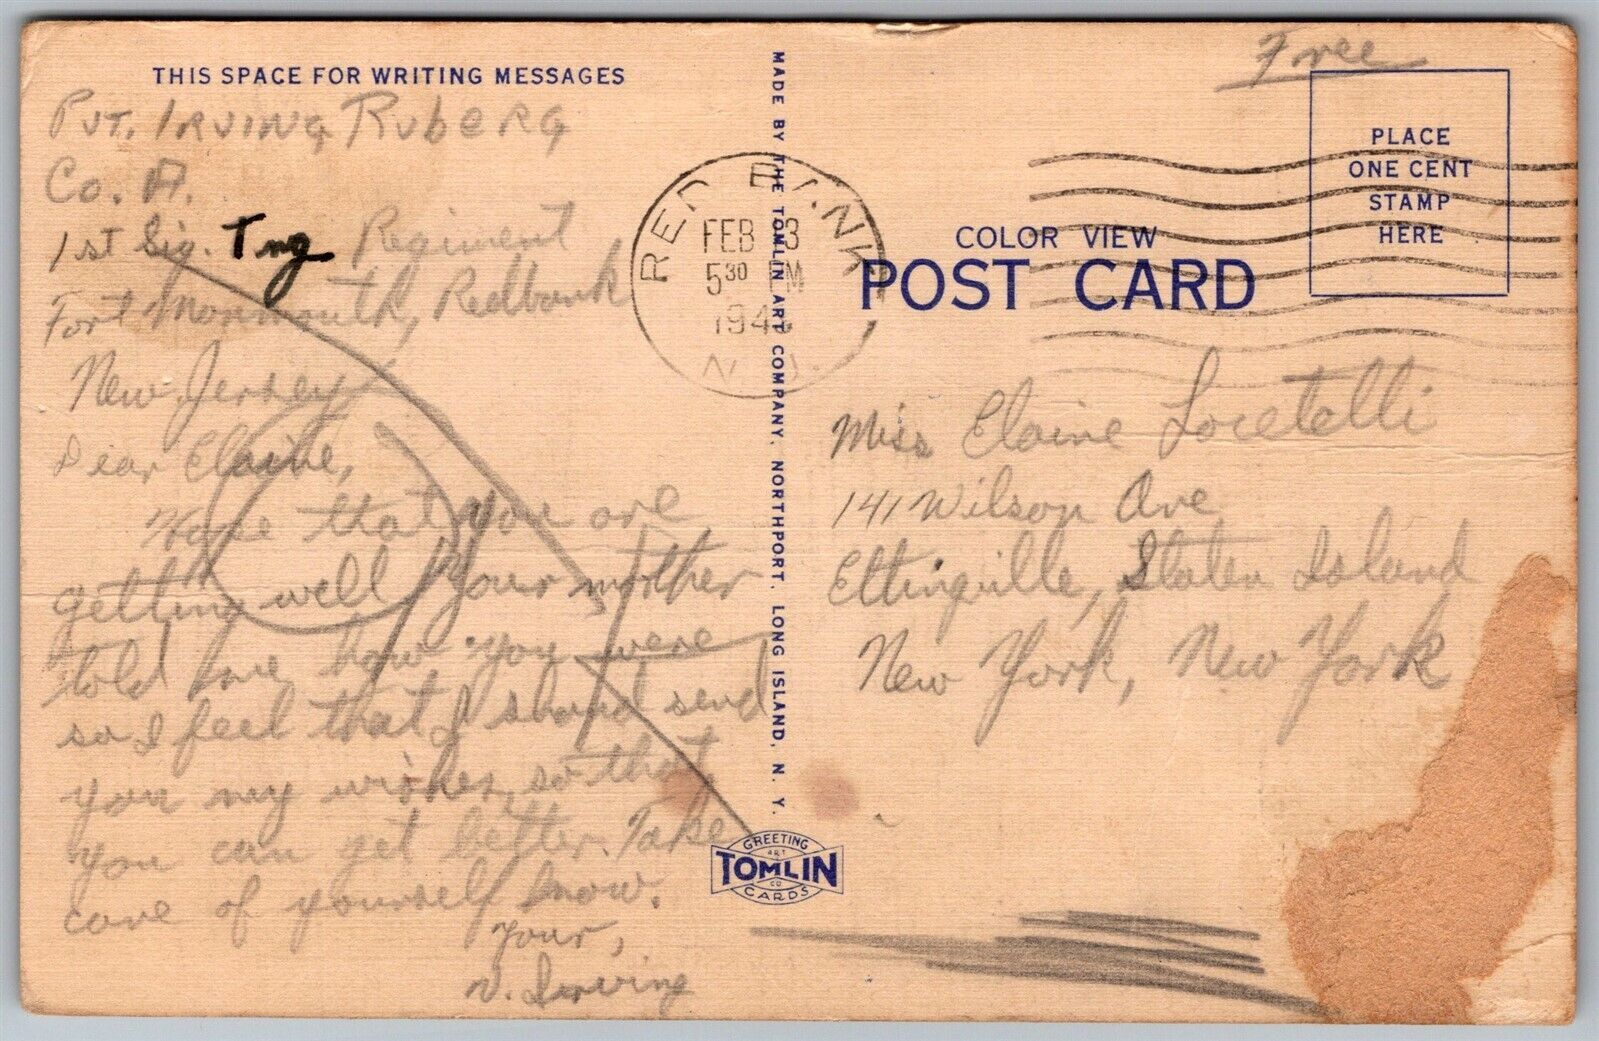 THIS SPACE FOR WRITING MESSAGES
Pvt. Irving Ruberg
Co. A.
1st Sig. Tng Regiment
Fort Monmouth, Redbank
New Jersey
Dear Elaine,
Hope that you are
getting well your mother
told me how you were
so I feel that I should send
you my wishes, so that
you can get better. Take
care of yourself know.
Your,
Irving
MADE BY THE TOMLIN ART COMPANY, NORTHPORT, LONG ISLAND, N. Y.
GREETING
ART
TOMLIN
CO
CARDS
RED BANK
FEB 3
5 30 PM
N.J.
Free
PLACE
ONE CENT
STAMP
HERE
COLOR VIEW
POST CARD
Miss Elaine Locetelli
141 Wilson Ave
Eltingville, Staten Island
New York, New York